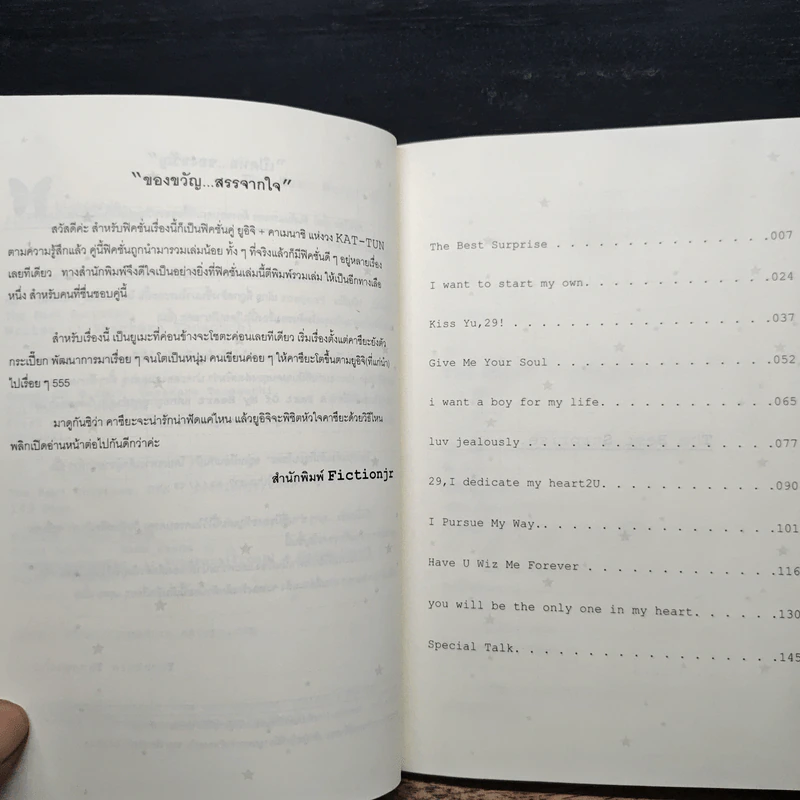 “ของขวัญ...สรรจากใจ”
สวัสดีค่ะ สำหรับฟิคชั่นเรื่องนี้ก็เป็นฟิคชั่นคู่ ยูอิจิ + คาเมนาชิ แห่งวง KAT-TUN
ตามความรู้สึกแล้ว คู่นี้ฟิคชั่นถูกนำมารวมเล่มน้อย ทั้ง ๆ ที่จริงแล้วก็มีฟิคชั่นดี ๆ อยู่หลายเรื่อง
เลยทีเดียว ทางสำนักพิมพ์จึงดีใจเป็นอย่างยิ่งที่ฟิคชั่นเล่มนี้ตีพิมพ์รวมเล่ม ให้เป็นอีกทางเลือ
หนึ่ง สำหรับคนที่ชื่นชอบคู่นี้
สำหรับเรื่องนี้ เป็นยูเมะที่ค่อนข้างจะโชตะค่อนเลยทีเดียว เริ่มเรื่องตั้งแต่คาซึยะยังตัว
กระเปี๊ยก พัฒนาการมาเรื่อย ๆ จนโตเป็นหนุ่ม คนเขียนค่อย ๆ ให้คาซึยะโตขึ้นตามยูอิจิ(ที่แก่นำ)
ไปเรื่อย ๆ 555
มาดูกันซิว่า คาซึยะจะน่ารักน่าฟัดแค่ไหน แล้วยูอิจิจะพิชิตหัวใจคาซึยะด้วยวิธีไหน
พลิกเปิดอ่านหน้าต่อไปกันดีกว่าค่ะ
สำนักพิมพ์ Fictionjr
The Best Surprise . . . . . . . . . . . . . .007
I want to start my own. . . . . . . . . . . .024
Kiss Yu,29! . . . . . . . . . . . . . . . . .037
Give Me Your Soul . . . . . . . . . . . . . .052
i want a boy for my life. . . . . . . . . . .065
luv jealously . . . . . . . . . . . . . . . .077
29,I dedicate my heart2U. . . . . . . . . . .090
I Pursue My Way.. . . . . . . . . . . . . . .101
Have U Wiz Me Forever . . . . . . . . . . . .116
you will be the only one in my heart. . . . .130
Special Talk. . . . . . . . . . . . . . . . .145